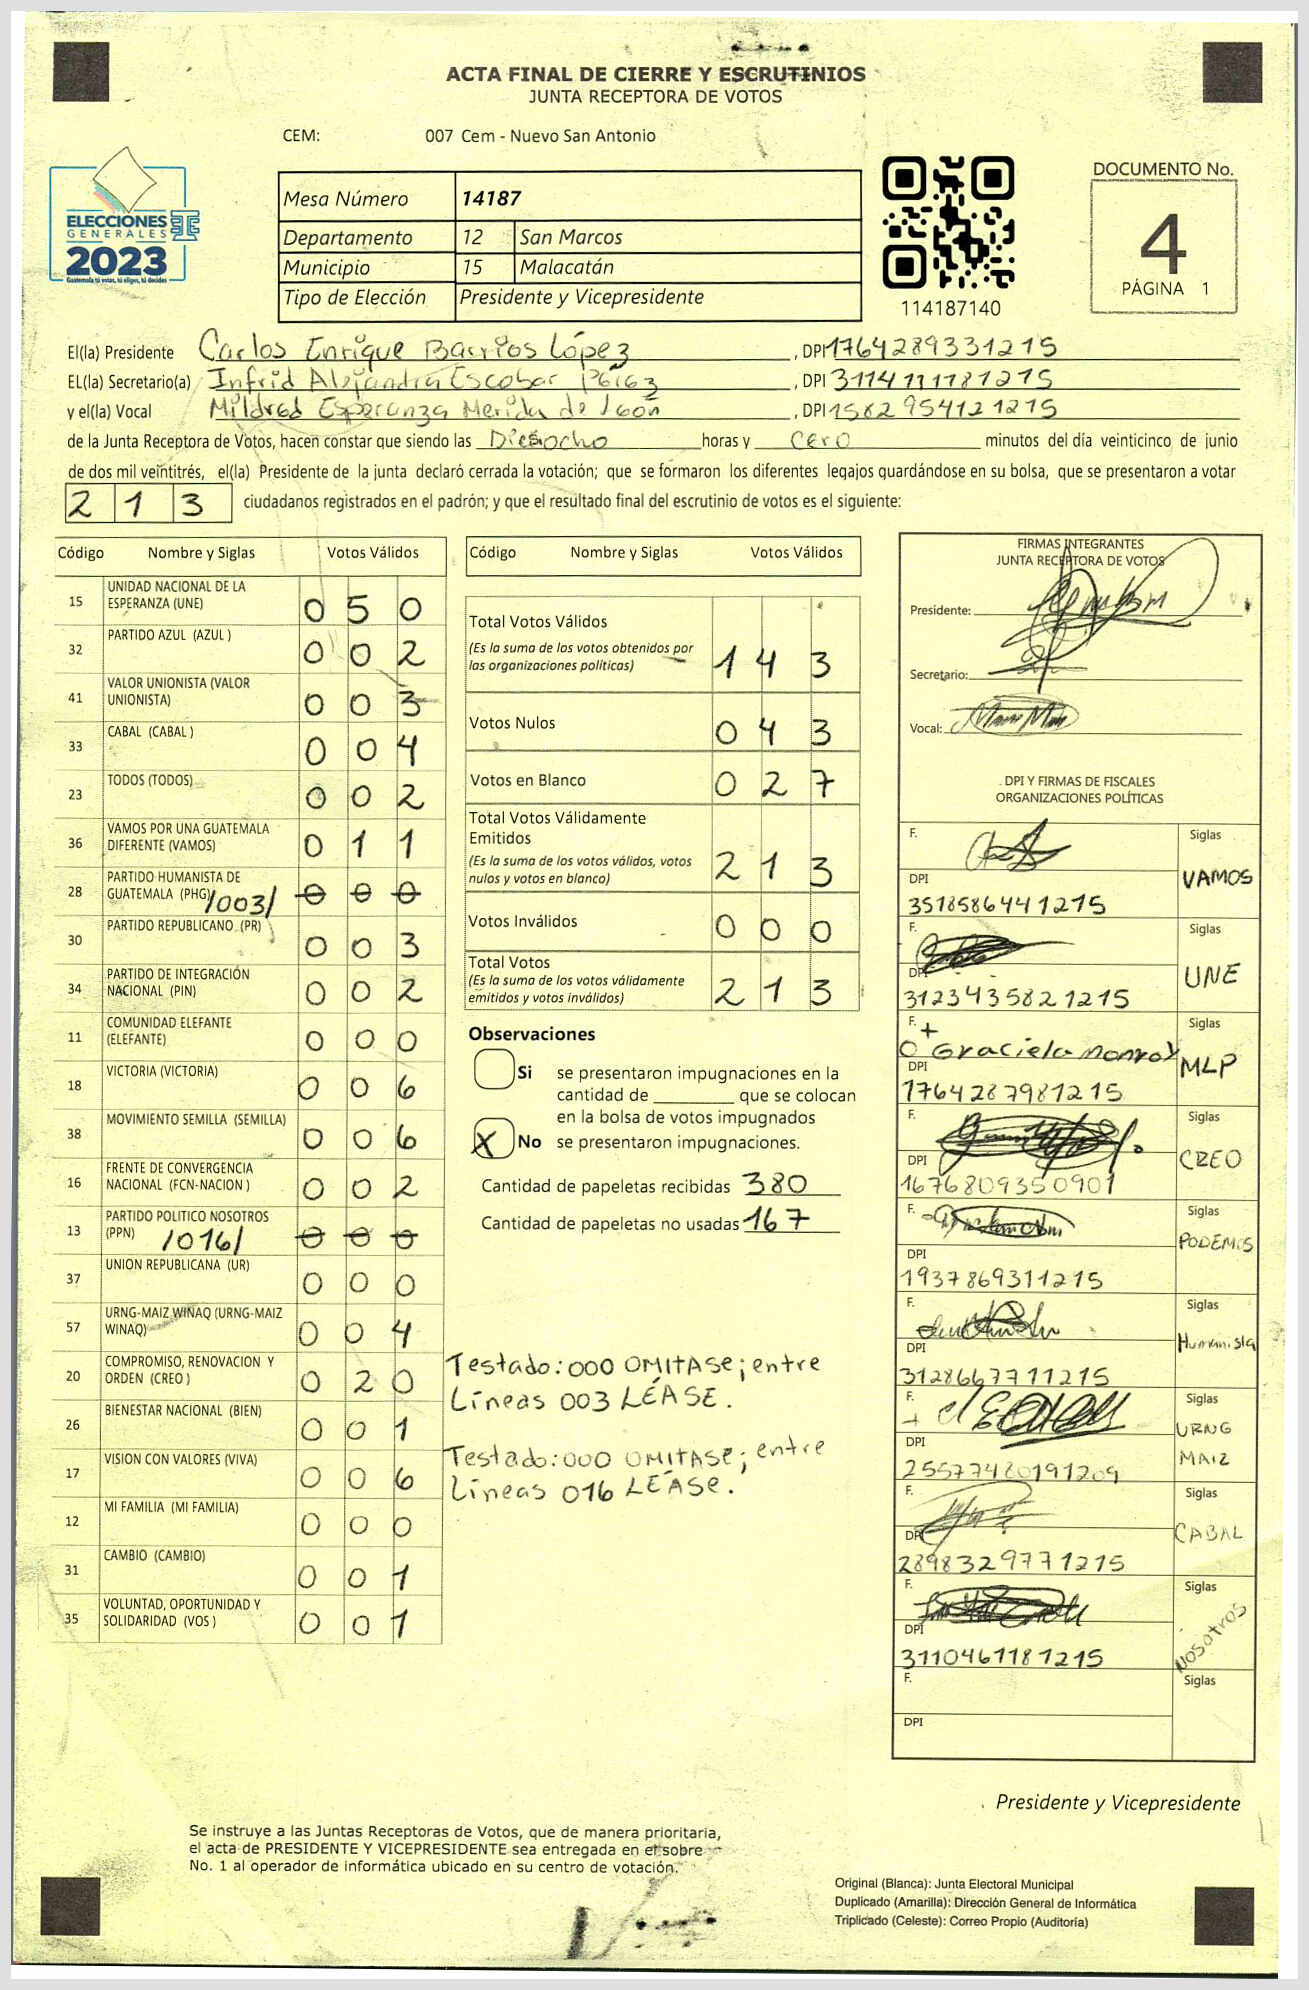 ACTA FINAL DE CIERRE Y ESCRUTINIOS
JUNTA RECEPTORA DE VOTOS
CEM: 007 Cem - Nuevo San Antonio
ELECCIONES
GENERALES
2023
Guatemala tú votas, tú eliges, tú decides
Mesa Número 14187
Departamento 12 San Marcos
Municipio 15 Malacatán
Tipo de Elección Presidente y Vicepresidente
114187140
DOCUMENTO No.
4
PÁGINA 1
El(la) Presidente Carlos Enrique Barrios López, DPI 1764289331215
EL(la) Secretario(a) Infrid Alejandra Escobar Pérez, DPI 3114111181215
y el(la) Vocal Mildred Esperanza Merida de león, DPI 1582954121215
de la Junta Receptora de Votos, hacen constar que siendo las Dieciocho horas y cero minutos del día veinticinco de junio
de dos mil veintitrés, el(la) Presidente de la junta declaró cerrada la votación; que se formaron los diferentes legajos guardándose en su bolsa, que se presentaron a votar
213 ciudadanos registrados en el padrón; y que el resultado final del escrutinio de votos es el siguiente:
Código Nombre y Siglas Votos Válidos
15 UNIDAD NACIONAL DE LA
ESPERANZA (UNE) 0 5 0
32 PARTIDO AZUL (AZUL ) 0 0 2
41 VALOR UNIONISTA (VALOR
UNIONISTA) 0 0 3
33 CABAL (CABAL ) 0 0 4
23 TODOS (TODOS) 0 0 2
36 VAMOS POR UNA GUATEMALA
DIFERENTE (VAMOS) 0 1 1
28 PARTIDO HUMANISTA DE
GUATEMALA (PHG) /003/ 0 0 0
30 PARTIDO REPUBLICANO (PR) 0 0 3
34 PARTIDO DE INTEGRACIÓN
NACIONAL (PIN) 0 0 2
11 COMUNIDAD ELEFANTE
(ELEFANTE) 0 0 0
18 VICTORIA (VICTORIA) 0 0 6
38 MOVIMIENTO SEMILLA (SEMILLA) 0 0 6
16 FRENTE DE CONVERGENCIA
NACIONAL (FCN-NACION ) 0 0 2
13 PARTIDO POLITICO NOSOTROS
(PPN) /016/ 0 0 0
37 UNION REPUBLICANA (UR) 0 0 0
57 URNG-MAIZ WINAQ (URNG-MAIZ
WINAQ) 0 0 4
20 COMPROMISO, RENOVACION Y
ORDEN (CREO ) 0 2 0
26 BIENESTAR NACIONAL (BIEN) 0 0 1
17 VISION CON VALORES (VIVA) 0 0 6
12 MI FAMILIA (MI FAMILIA) 0 0 0
31 CAMBIO (CAMBIO) 0 0 1
35 VOLUNTAD, OPORTUNIDAD Y
SOLIDARIDAD (VOS ) 0 0 1
Código Nombre y Siglas Votos Válidos
Total Votos Válidos
(Es la suma de los votos obtenidos por
las organizaciones políticas) 1 4 3
Votos Nulos 0 4 3
Votos en Blanco 0 2 7
Total Votos Válidamente
Emitidos
(Es la suma de los votos válidos, votos
nulos y votos en blanco) 2 1 3
Votos Inválidos 0 0 0
Total Votos
(Es la suma de los votos válidamente
emitidos y votos inválidos) 2 1 3
Observaciones
Si se presentaron impugnaciones en la
cantidad de ________ que se colocan
en la bolsa de votos impugnados
X No se presentaron impugnaciones.
Cantidad de papeletas recibidas 380
Cantidad de papeletas no usadas 167
Testado: 000 OMITASE; entre
Líneas 003 LÉASE.
Testado: 000 OMÍTASE; entre
Líneas 016 LÉASE.
FIRMAS INTEGRANTES
JUNTA RECEPTORA DE VOTOS
Presidente:
Secretario:
Vocal:
DPI Y FIRMAS DE FISCALES
ORGANIZACIONES POLÍTICAS
F. Siglas
VAMOS
DPI
3518586441215
F. Siglas
UNE
DPI
3123435821215
F. Siglas
Graciela Monroy MLP
DPI
1764287981215
F. Siglas
CREO
DPI
1676809350901
F. Siglas
PODEMOS
DPI
1937869311215
F. Siglas
Humanista
DPI
3128667711215
F. Siglas
URNG
MAIZ
DPI
2557748019 1209
F. Siglas
CABAL
DPI
2898329771215
F. Siglas
NOSOTROS
DPI
3110461181215
F. Siglas
DPI
Presidente y Vicepresidente
Se instruye a las Juntas Receptoras de Votos, que de manera prioritaria,
el acta de PRESIDENTE Y VICEPRESIDENTE sea entregada en el sobre
No. 1 al operador de informática ubicado en su centro de votación.
Original (Blanca): Junta Electoral Municipal
Duplicado (Amarilla): Dirección General de Informática
Triplicado (Celeste): Correo Propio (Auditoría)